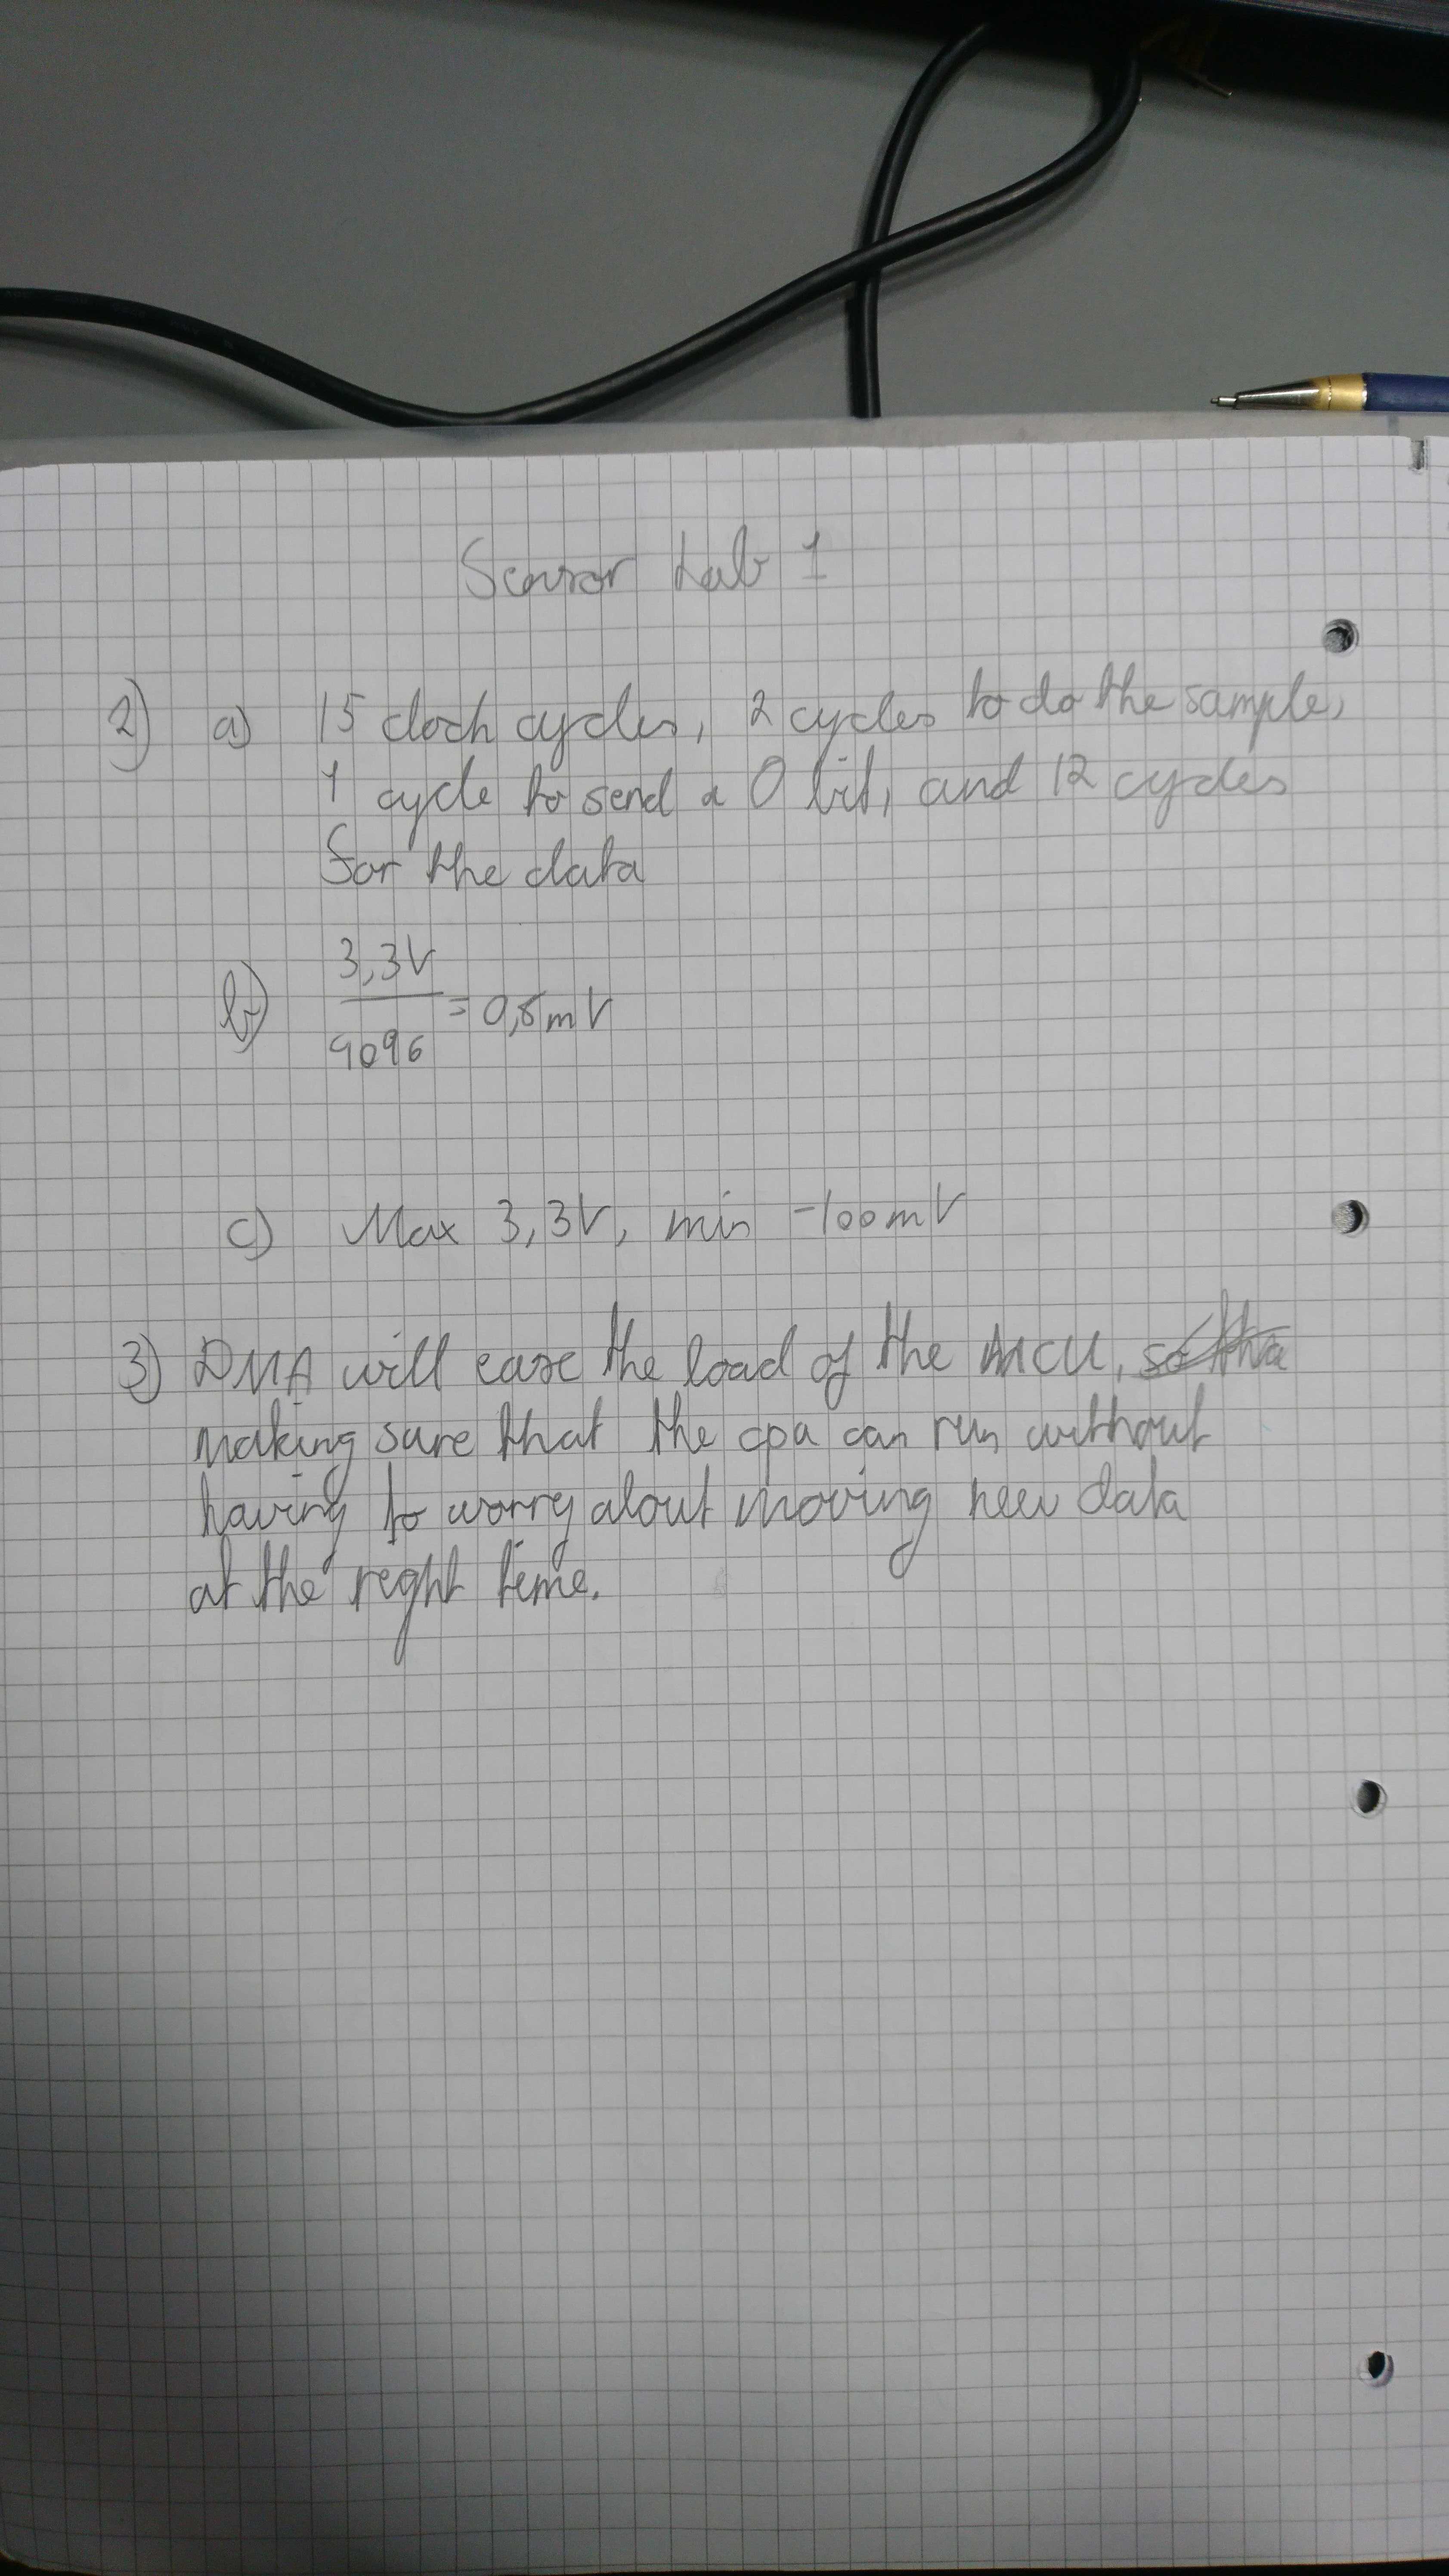 Sensor Lab 1
2) a) 15 clock cycles, 2 cycles to do the sample,
1 cycle to send a 0 bit, and 12 cycles
for the data
b) 3,3V / 4096 = 0,8mV
c) Max 3,3V, min -100mV
3) DMA will ease the load of the MCU, so tha
making sure that the cpu can run without
having to worry about moving new data
at the right time.